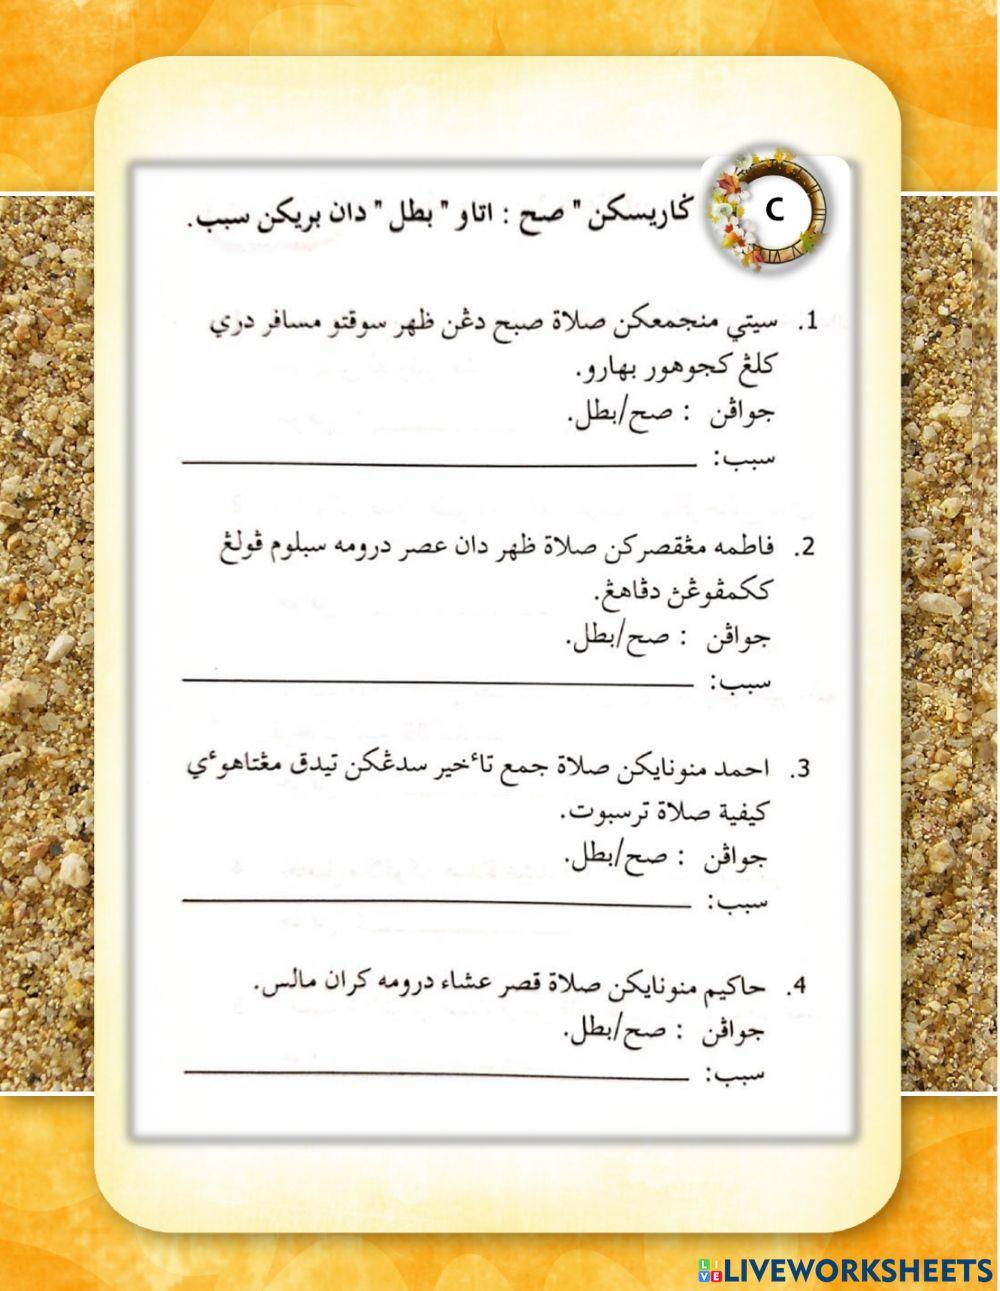 C
ݢاريسكن " صح : اتاو " بطل " دان بريكن سبب.
1. سيتي منجمعكن صلاة صبح دڠن ظهر سوقتو مسافر دري
كلڠ كجوهور بهارو.
جواڤن : صح/بطل.
سبب: ____
2. فاطمه مڠقصركن صلاة ظهر دان عصر درومه سبلوم ڤولڠ
ككمڤوڠن دڤاهڠ.
جواڤن : صح/بطل.
سبب: ____
3. احمد منونايكن صلاة جمع تاٴخير سدڠكن تيدق مڠتاهوٴي
كيفية صلاة ترسبوت.
جواڤن : صح/بطل.
سبب: ____
4. حاكيم منونايكن صلاة قصر عشاء درومه كران مالس.
جواڤن : صح/بطل.
سبب: ____
LIVE LIVEWORKSHEETS